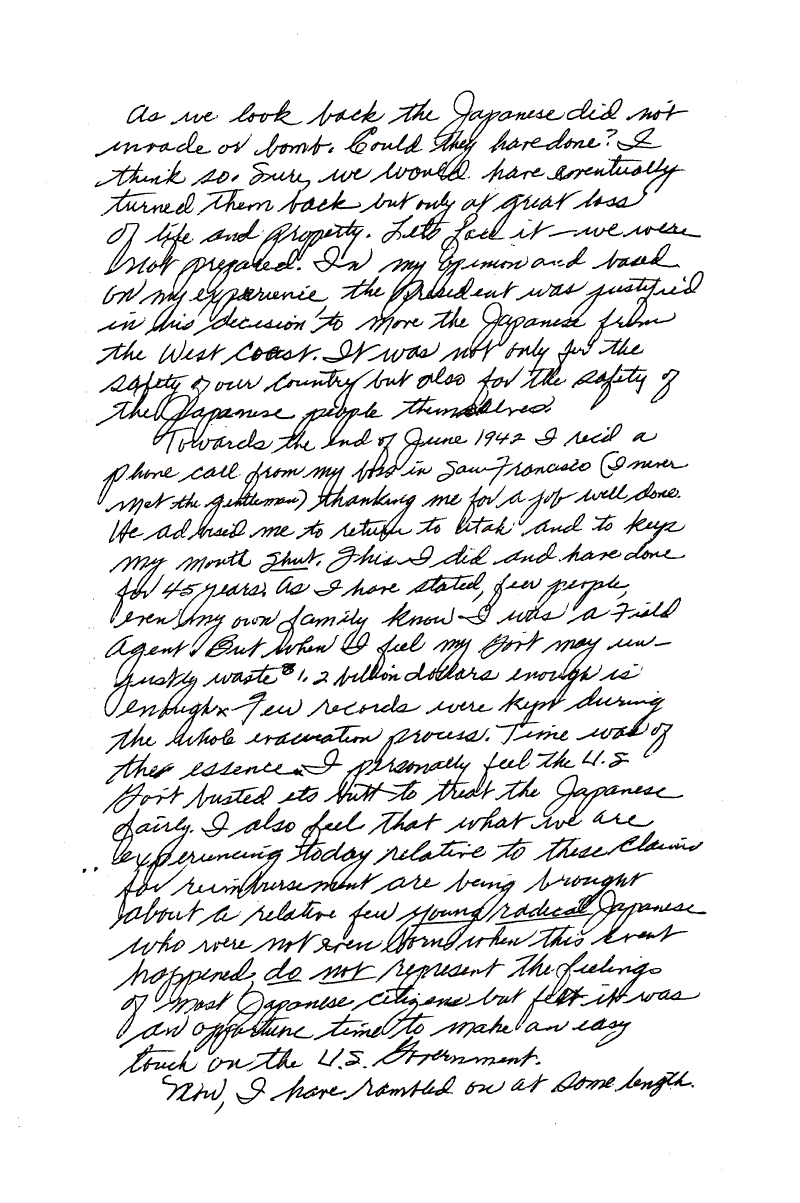 As we look back the Japanese did not
invade or bomb. Could they have done? I
think so. Sure, we would have eventually
turned them back but only at great loss
of life and property. Let's face it - we were
not prepared. In my opinion and based
on my experience, the president was justified
in his decision to move the Japanese from
the West Coast. It was not only for the
safety of our country but also for the safety of
the Japanese people themselves.
Towards the end of June 1942 I rec'd a
phone call from my boss in San Francisco (I never
met the gentleman) thanking me for a job well done.
He advised me to return to Utah and to keep
my mouth shut. This I did and have done
for 45 years. As I have stated, few people,
even my own family know I was a Field
Agent. But when I feel my Govt may un-
justly waste $1.2 billion dollars enough is
enough. Few records were kept during
the whole evacuation process. Time was of
the essence. I personally feel the U.S
Govt busted its butt to treat the Japanese
fairly. I also feel that what we are
experiencing today relative to these claims
for reimbursement are being brought
about a relative few young radical Japanese
who were not even born when this event
happened, do not represent the feelings
of most Japanese citizens but felt it was
an opportune time to make an easy
touch on the U.S. Government.
Now, I have rambled on at some length.